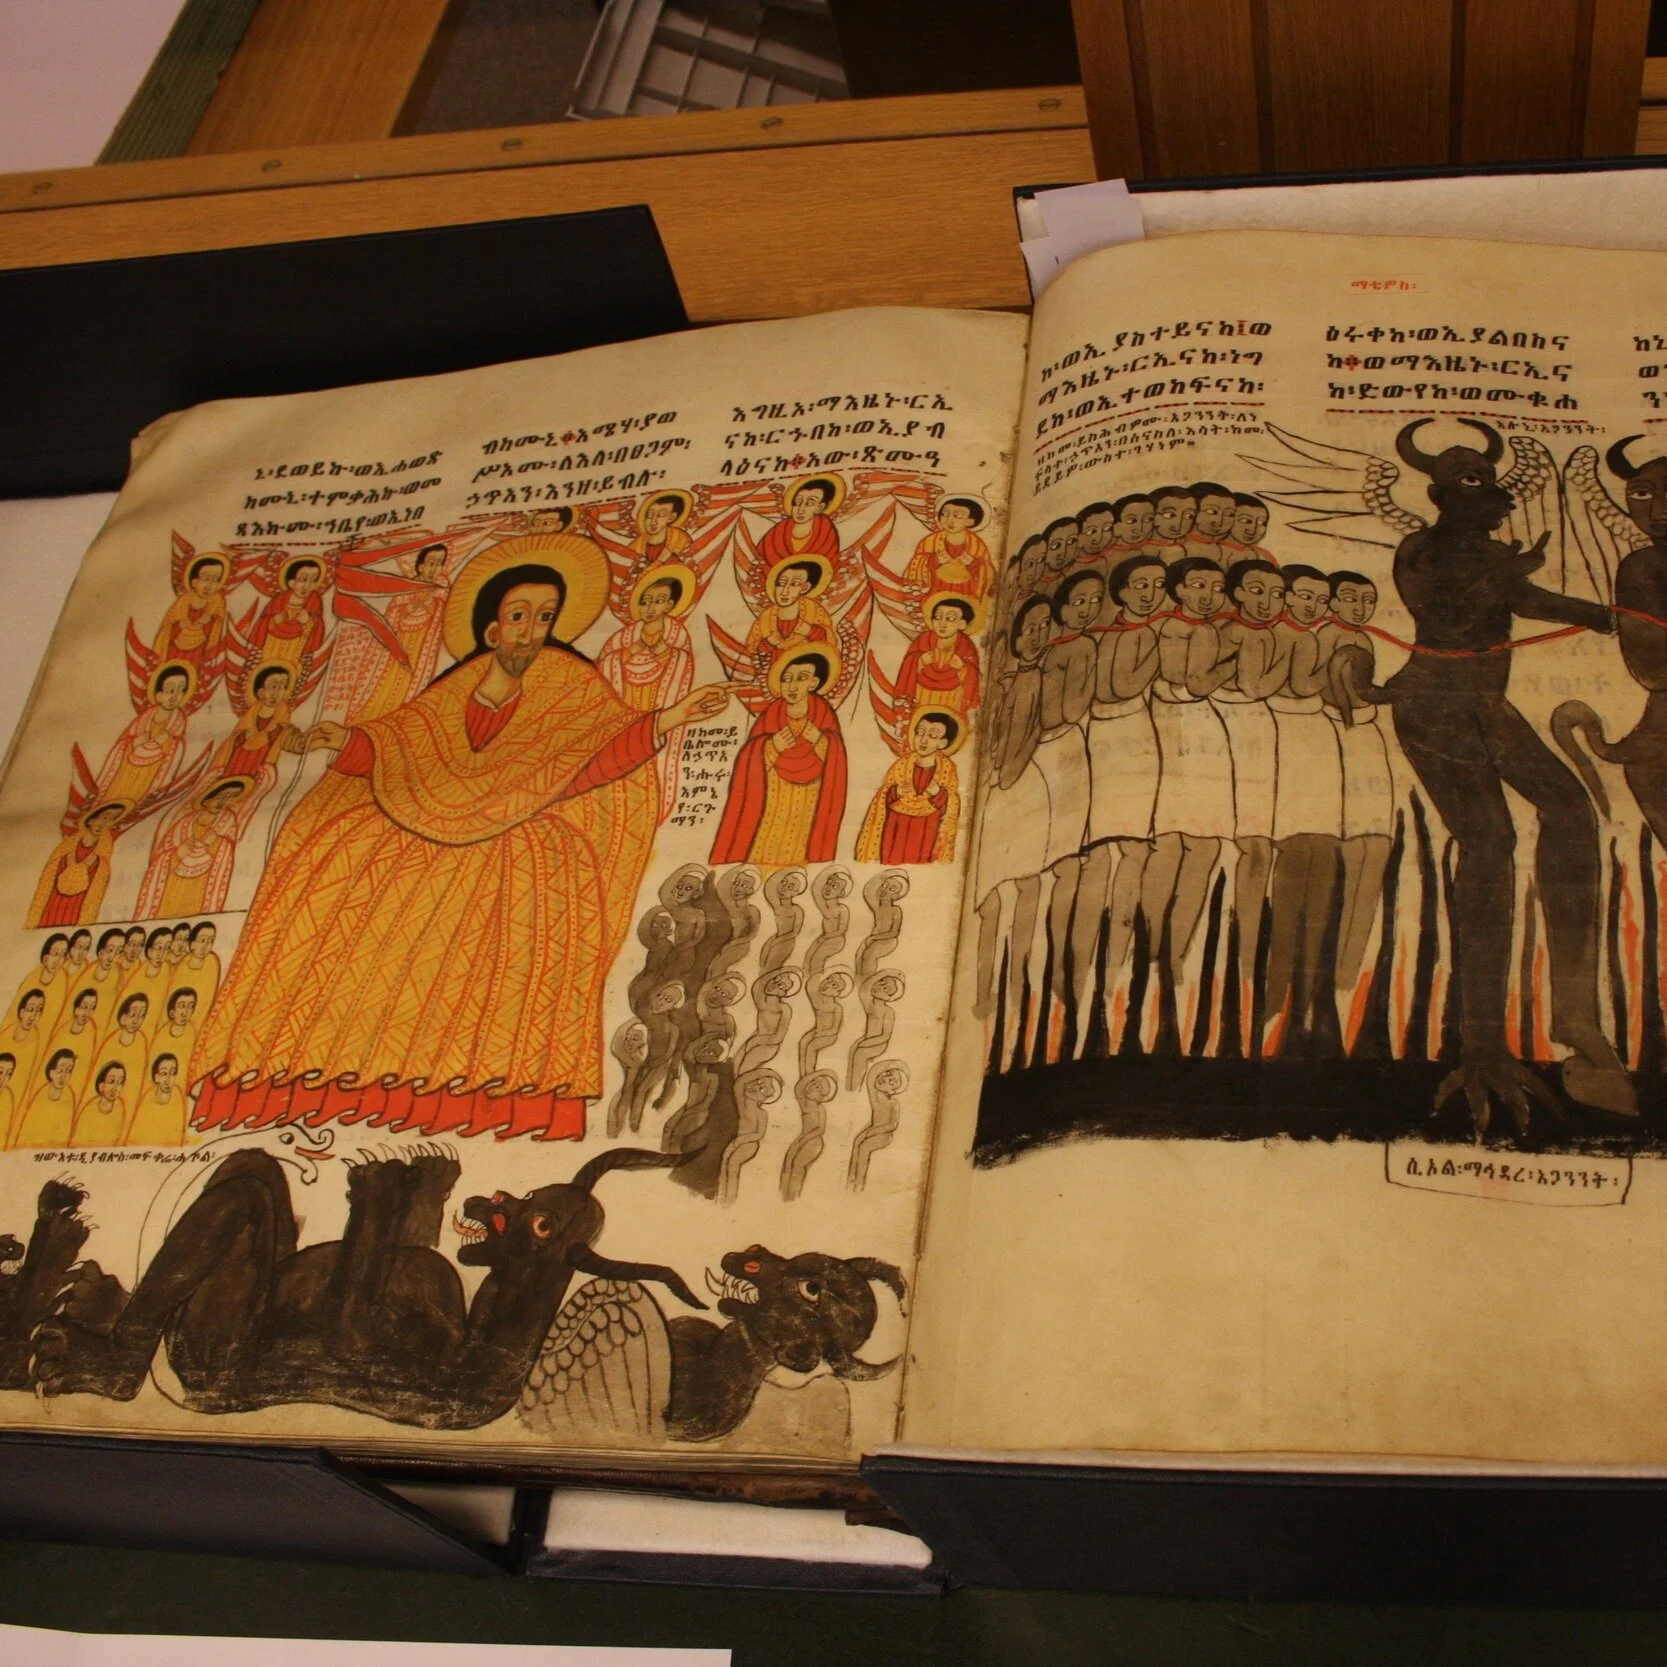 ኒ፡ደወይኩ፡ወኢሐወጽ
ክሙኒ፡ተምቃሕኩ፡ወመ
ጻእክሙ፡ኀቤየ፡ወኢነበ
ብክሙኒ።አሜሃ፡ያወ
ሥእሙ፡ለእለ፡በፀጋም፡
ኃጥአን፡እንዘ፡ይብሉ፡
እግዚአ፡ማእዜኑ፡ርኢ
ናከ፡ርኁበከ፡ወኢያብ
ላዕናከ።አው፡ጽሙዓ
ዘከመ፡ይ
ቤሎሙ፡
ለኃጥአ
ን፡ሑሩ፡
እምኔ
የ፡ርጉ
ማን፡
ማቴዎስ፡
ከ፡ወኢያስተይናከ፤ወ
ማእዜኑ፡ርኢናከ፡ነግ
ደከ፡ወኢተወከፍናከ፡
ዕሩቀከ፡ወኢያልበስና
ከ።ወማእዜኑ፡ርኢና
ከ፡ድውየከ፡ወሙቁሐ
እሉ፡አጋንንት፡
ሲኦል፡ማኅደረ፡አጋንንት፡